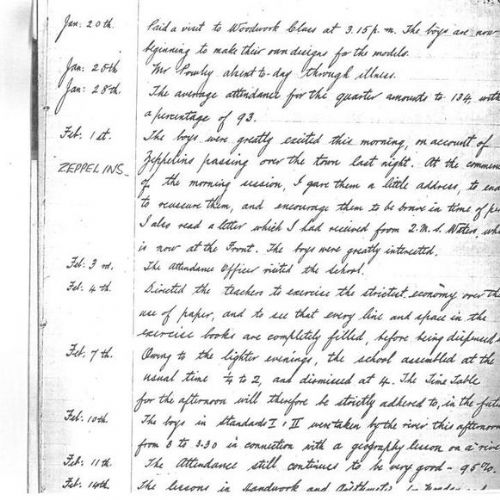 Jan: 20th Paid a visit to Woodwork Class at 3.15 p.m. The boys are now
beginning to make their own designs for the models.
Jan: 28th Mr absent to-day through illness.
Jan: 28th. The average attendance for the quarter amounts to 134 with
a percentage of 93.
Feb: 1st. The boys were greatly excited this morning, on account of
ZEPPELINS Zeppelins passing over the town last night. At the
of the morning session, I gave them a little address, to
to reassure them, and encourage them to be brave in time of
I also read a letter which I had received from
is now at the Front. The boys were greatly interested.
Feb: 3rd. The Attendance Officer visited the school.
Feb: 4th. Directed the teachers to exercise the strictest economy over the
use of paper, and to see that every line and space in the
exercise books are completely filled, before being
Feb: 7th. Owing to the lighter evenings, the school assembled at the
usual time ¼ to 2, and dismissed at 4. The Time Table
for the afternoon will therefore be strictly adhered to, in the
Feb: 10th. The boys in Standards I, II were taken by the river this afternoon
from 3 to 3.30 in connection with a geography lesson on a
Feb: 11th. The Attendance still continues to be very good - 95%.
Feb: 14th The lessons in Handwork and Arithmetic